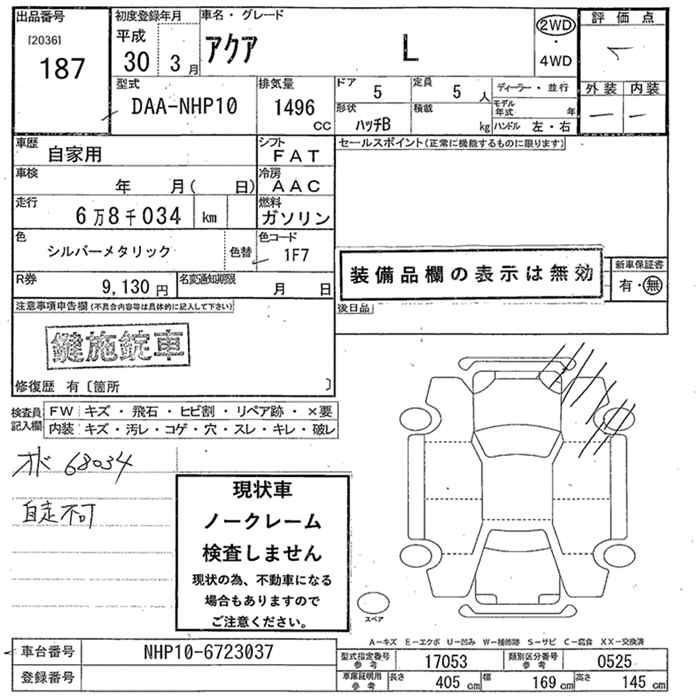 出品番号
[2036]
187
初度登録年月
平成
30 3月
車名・グレード
アクア L
2WD
・
4WD
評価点
外装 内装
— —
型式
DAA-NHP10
排気量
1496
cc
ドア
5
定員
5 人
ディーラー・並行
モデル年式 年
形状
ハッチB
積載
kg
ハンドル 左・右
車歴
自家用
シフト
FAT
セールスポイント(正常に機能するものに限ります)
車検
年 月( 日)
冷房
AAC
走行
6万8千034 km
燃料
ガソリン
色
シルバーメタリック
色替
色コード
1F7
装備品欄の表示は無効
新車保証書
有・無
R券
9,130円
名変通知期限
月 日
後日品
注意事項申告欄(不具合内容等は具体的に記入して下さい)
鍵施錠車
修復歴 有〔箇所 〕
検査員記入欄
FW キズ・飛石・ヒビ割・リペア跡・×要
内装 キズ・汚レ・コゲ・穴・スレ・キレ・破レ
オド 68034
自走不可
現状車
ノークレーム
検査しません
現状の為、不動車になる
場合もありますので
ご注意ください。
スペア
A-キズ E-エクボ U-凹み W-補修跡 S-サビ C-腐食 XX-交換済
車台番号 NHP10-6723037
登録番号
型式指定番号参考 17053
類別区分番号参考 0525
車庫証明用参考 長さ 405 cm 幅 169 cm 高さ 145 cm